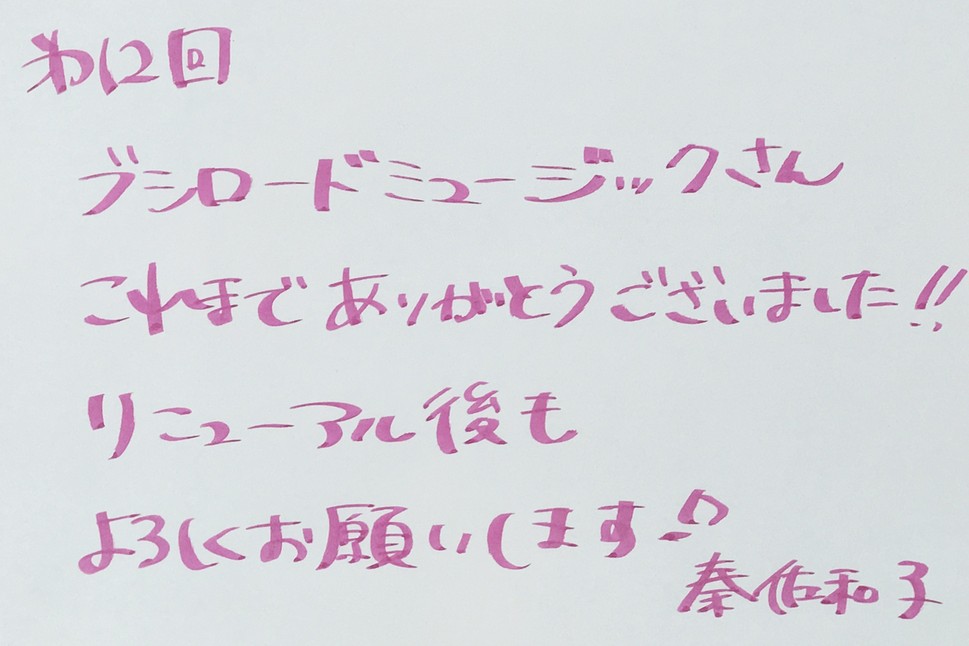 第12回
ブシロードミュージックさん
これまでありがとうございました!!
リニューアル後も
よろしくお願いします♪
秦佐和子